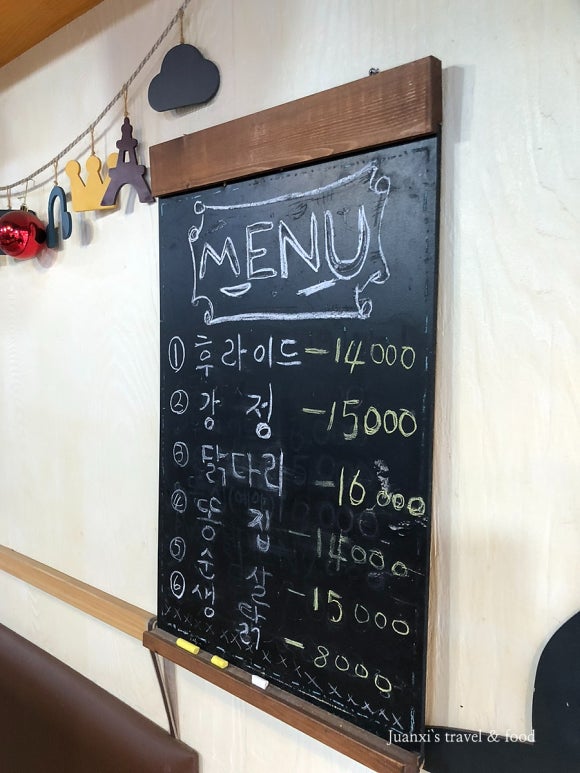 MENU
① 후라이드 - 14000
② 강 정 - 15000
③ 닭다리 - 16000
④ 똥 집 - 14000
⑤ 순 살 - 15000
⑥ 생 닭 - 8000
Juanxi's travel & food